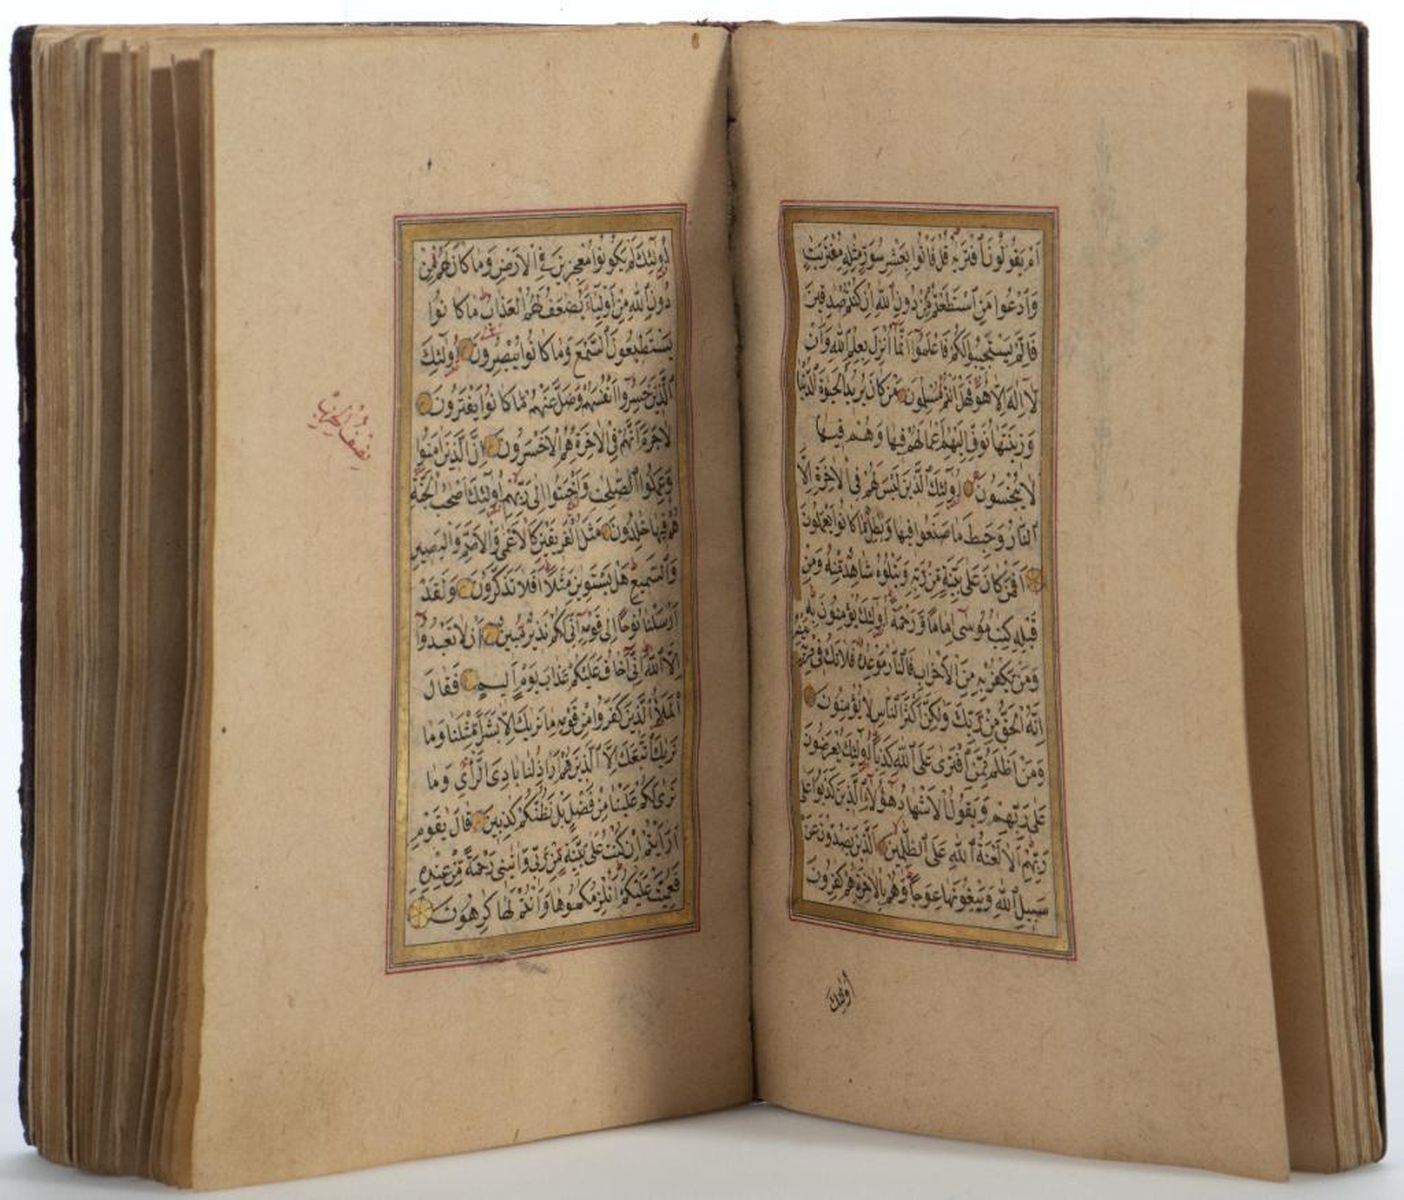 اَمْ يَقُولُونَ ٱفْتَرٰيهُ قُلْ فَاْتُوا بِعَشْرِ سُوَرٍ مِثْلِهِ مُفْتَرَيَاتٍ
وَٱدْعُوا مَنِ ٱسْتَطَعْتُمْ مِنْ دُونِ اللّٰهِ اِنْ كُنْتُمْ صٰدِقِينَ
فَاِلَّمْ يَسْتَجِيبُوا لَكُمْ فَاعْلَمُوٓا اَنَّمَٓا اُنْزِلَ بِعِلْمِ اللّٰهِ وَاَنْ
لَٓا اِلٰهَ اِلَّا هُوَ فَهَلْ اَنْتُمْ مُسْلِمُونَ مَنْ كَانَ يُرِيدُ الْحَيٰوةَ الدُّنْيَا
وَزِينَتَهَا نُوَفِّ اِلَيْهِمْ اَعْمَالَهُمْ فِيهَا وَهُمْ فِيهَا
لَا يُبْخَسُونَ اُولٰٓئِكَ الَّذِينَ لَيْسَ لَهُمْ فِي الْاٰخِرَةِ اِلَّا
النَّارُ وَحَبِطَ مَا صَنَعُوا فِيهَا وَبٰطِلٌ مَا كَانُوا يَعْمَلُونَ
اَفَمَنْ كَانَ عَلٰى بَيِّنَةٍ مِنْ رَبِّهِ وَيَتْلُوهُ شَاهِدٌ مِنْهُ وَمِنْ
قَبْلِهِ كِتٰبُ مُوسٰٓى اِمَامًا وَرَحْمَةً اُولٰٓئِكَ يُؤْمِنُونَ بِهِ
وَمَنْ يَكْفُرْ بِهِ مِنَ الْاَحْزَابِ فَالنَّارُ مَوْعِدُهُ فَلَا تَكُ فِي مِرْيَةٍ مِنْهُ
اِنَّهُ الْحَقُّ مِنْ رَبِّكَ وَلٰكِنَّ اَكْثَرَ النَّاسِ لَا يُؤْمِنُونَ
وَمَنْ اَظْلَمُ مِمَّنِ ٱفْتَرٰى عَلَى اللّٰهِ كَذِبًا اُولٰٓئِكَ يُعْرَضُونَ
عَلٰى رَبِّهِمْ وَيَقُولُ الْاَشْهَادُ هٰٓؤُلَٓاءِ الَّذِينَ كَذَبُوا عَلٰى
رَبِّهِمْ اَلَا لَعْنَةُ اللّٰهِ عَلَى الظّٰلِمِينَ الَّذِينَ يَصُدُّونَ عَنْ
سَبِيلِ اللّٰهِ وَيَبْغُونَهَا عِوَجًا وَهُمْ بِالْاٰخِرَةِ هُمْ كٰفِرُونَ
اولئك
اُولٰٓئِكَ لَمْ يَكُونُوا مُعْجِزِينَ فِي الْاَرْضِ وَمَا كَانَ لَهُمْ مِنْ
دُونِ اللّٰهِ مِنْ اَوْلِيَٓاءَ يُضٰعَفُ لَهُمُ الْعَذَابُ مَا كَانُوا
يَسْتَطِيعُونَ السَّمْعَ وَمَا كَانُوا يُبْصِرُونَ اُولٰٓئِكَ
الَّذِينَ خَسِرُوٓا اَنْفُسَهُمْ وَضَلَّ عَنْهُمْ مَا كَانُوا يَفْتَرُونَ
لَا جَرَمَ اَنَّهُمْ فِي الْاٰخِرَةِ هُمُ الْاَخْسَرُونَ اِنَّ الَّذِينَ اٰمَنُوا
وَعَمِلُوا الصّٰلِحٰتِ وَاَخْبَتُوٓا اِلٰى رَبِّهِمْ اُولٰٓئِكَ اَصْحٰبُ الْجَنَّةِ
هُمْ فِيهَا خٰلِدُونَ مَثَلُ الْفَرِيقَيْنِ كَالْاَعْمٰى وَالْاَصَمِّ وَالْبَصِيرِ
وَالسَّمِيعِ هَلْ يَسْتَوِيٰنِ مَثَلًا اَفَلَا تَذَكَّرُونَ وَلَقَدْ
اَرْسَلْنَا نُوحًا اِلٰى قَوْمِهِ اِنِّي لَكُمْ نَذِيرٌ مُبِينٌ اَنْ لَا تَعْبُدُوٓا
اِلَّا اللّٰهَ اِنِّٓي اَخَافُ عَلَيْكُمْ عَذَابَ يَوْمٍ اَلِيمٍ فَقَالَ
الْمَلَاُ الَّذِينَ كَفَرُوا مِنْ قَوْمِهِ مَا نَرٰيكَ اِلَّا بَشَرًا مِثْلَنَا وَمَا
نَرٰيكَ اتَّبَعَكَ اِلَّا الَّذِينَ هُمْ اَرَاذِلُنَا بَادِيَ الرَّأْيِ وَمَا
نَرٰى لَكُمْ عَلَيْنَا مِنْ فَضْلٍ بَلْ نَظُنُّكُمْ كٰذِبِينَ قَالَ يٰقَوْمِ
اَرَاَيْتُمْ اِنْ كُنْتُ عَلٰى بَيِّنَةٍ مِنْ رَبِّي وَاٰتٰينِي رَحْمَةً مِنْ عِنْدِهِ
فَعُمِّيَتْ عَلَيْكُمْ اَنُلْزِمُكُمُوهَا وَاَنْتُمْ لَهَا كٰرِهُونَ
نصف الحزب